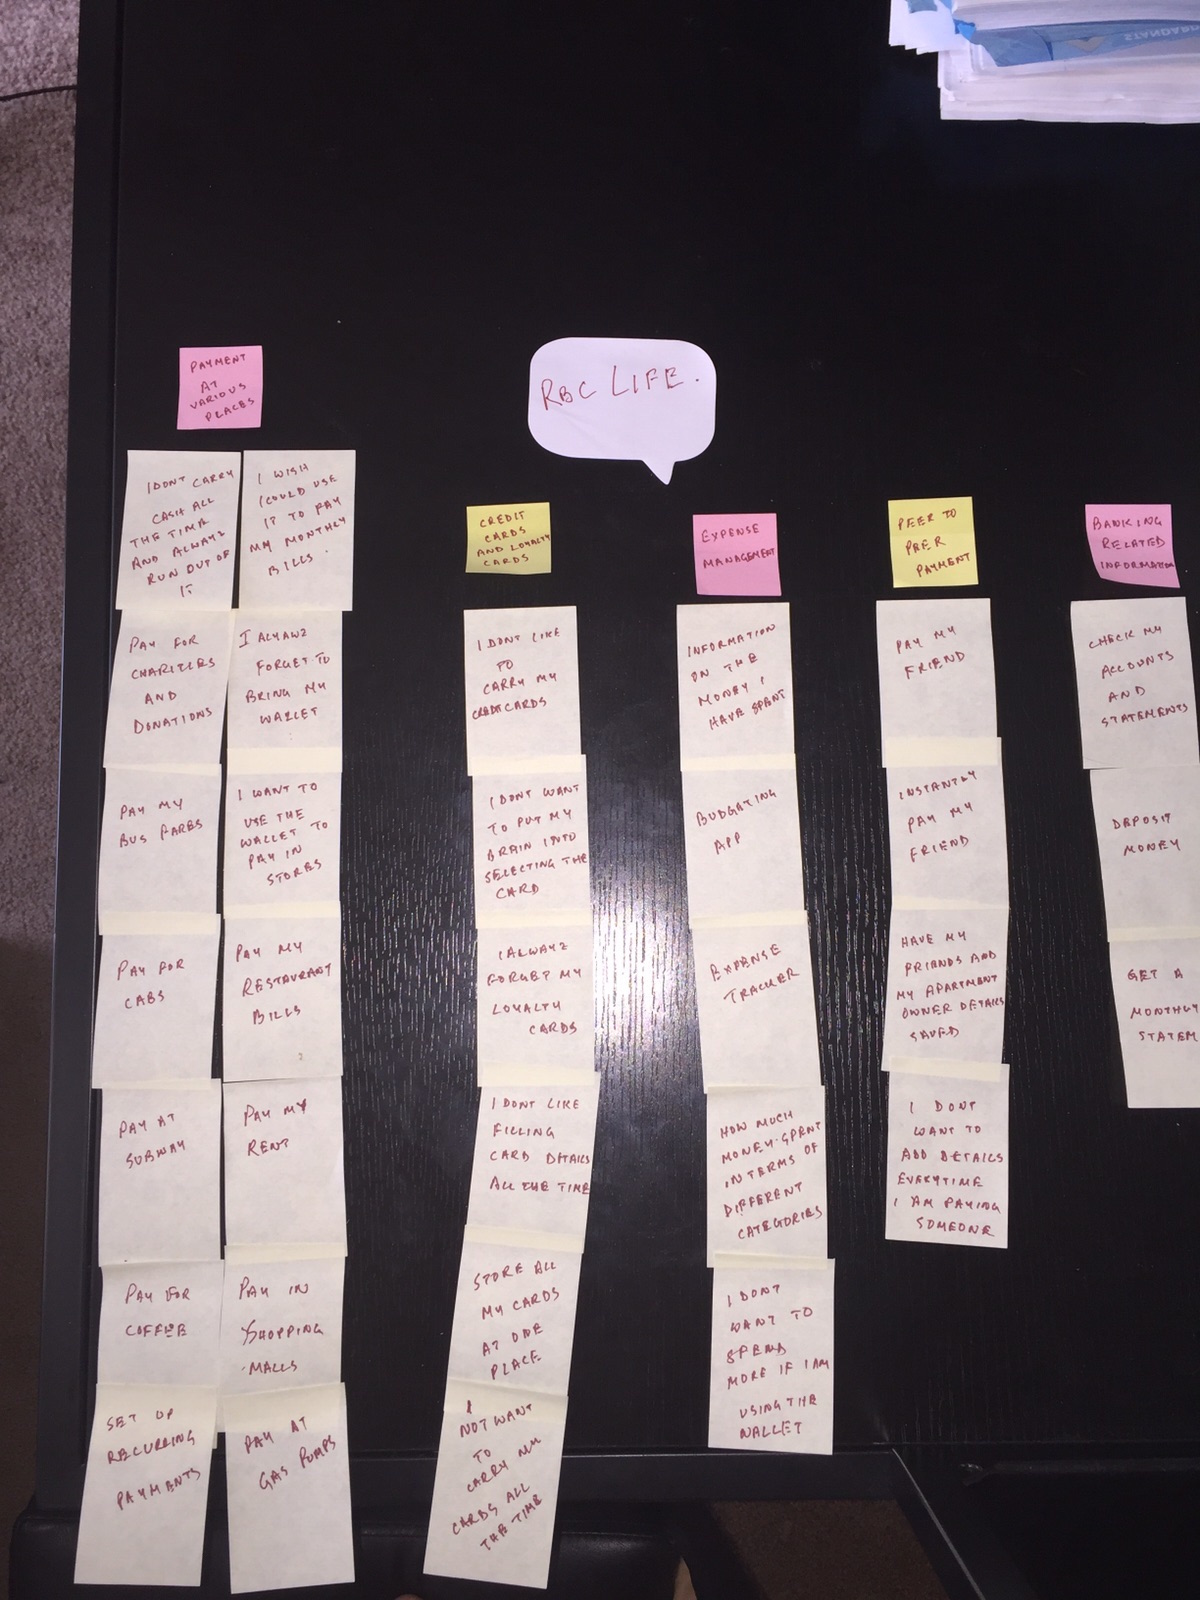 STANDARD
RBC LIFE.
PAYMENT
AT
VARIOUS
PLACES
I DONT CARRY
CASH ALL
THE TIME
AND ALWAYZ
RUN OUT OF
IT
PAY FOR
CHARITIES
AND
DONATIONS
PAY MY
BUS FARES
PAY FOR
CABS
PAY AT
SUBWAY
PAY FOR
COFFEE
SET UP
RECURRING
PAYMENTS
I WISH
I COULD USE
IT TO PAY
MY MONTHLY
BILLS.
I ALYAWZ
FORGET TO
BRING MY
WALLET
I WANT TO
USE THE
WALLET TO
PAY IN
STORES
PAY MY
RESTAURANT
BILLS
PAY MY
RENT
PAY IN
SHOPPING
MALLS
PAY AT
GAS PUMPS
CREDIT
CARDS
AND LOYALTY
CARDS
I DONT LIKE
TO
CARRY MY
CREDIT CARDS
I DONT WANT
TO PUT MY
BRAIN INTO
SELECTING THE
CARD
I ALWAYZ
FORGET MY
LOYALTY
CARDS
I DONT LIKE
FILLING
CARD DETAILS
ALL THE TIME
STORE ALL
MY CARDS
AT ONE
PLACE
I
NOT WANT
TO
CARRY MY
CARDS ALL
THE TIME
EXPENSE
MANAGEMENT
INFORMATION
ON THE
MONEY I
HAVE SPENT
BUDGATING
APP
EXPENSE
TRACKER
HOW MUCH
MONEY SPENT
IN TERMS OF
DIFFERENT
CATEGORIES
I DONT
WANT TO
SPEND
MORE IF I AM
USING THE
WALLET
PEER TO
PEER
PAYMENT
PAY MY
FRIEND
INSTANTLY
PAY MY
FRIEND
HAVE MY
FRIENDS AND
MY APARTMENT
OWNER DETAILS
SAVED
I DONT
WANT TO
ADD DETAILS
EVERYTIME
I AM PAYING
SOMEONE
BANKING
RELATED
INFORMATION
CHECK MY
ACCOUNTS
AND
STATEMENTS
DEPOSIT
MONEY
GET A
MONTHLY
STATEM